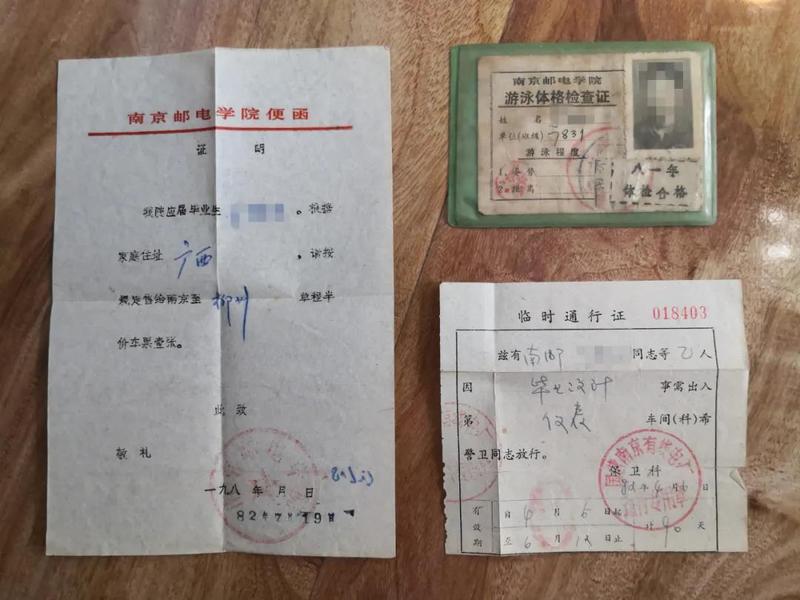 南京邮电学院便函
证 明
我院应届毕业生 。根据
家庭住址 广西 ，请按
规定售给南京至 柳州 单程半
价车票壹张。
此致
敬礼
一九八 年 月 日
82年7月19日
南京邮电学院
游泳体格检查证
姓 名
单位(班级) 7831
游泳程度
八一年
体检合格
临时通行证 018403
兹有 南邮 同志等 乙 人
因 毕业设计 事需出入
第 仪表 车间(科)希
警卫同志放行。
保卫科
82年4月6日
有效期
自 4 月 6 日起
至 6 月 12 日止